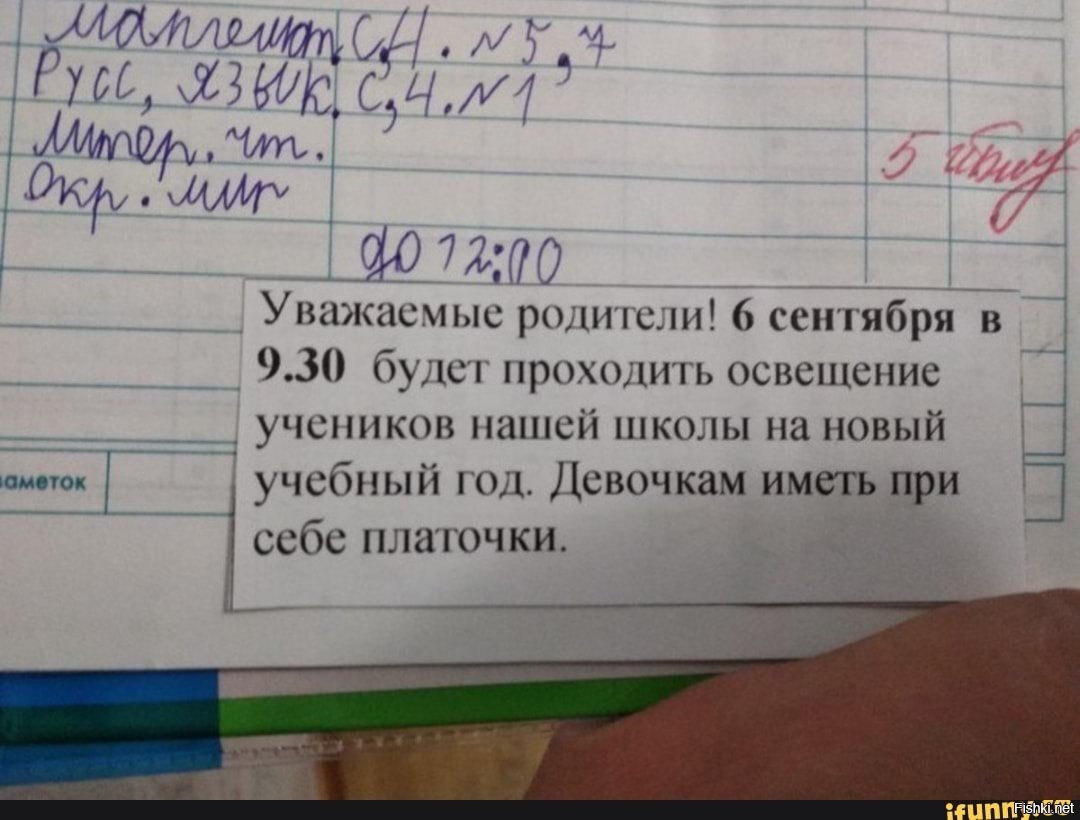 математ. С,4. №5,7
Русс, язык. С,4.№1
Литер. чт.
Окр. мир
5
до 12:00
Уважаемые родители! 6 сентября в
9.30 будет проходить освещение
учеников нашей школы на новый
учебный год. Девочкам иметь при
себе платочки.
заметок
ifunny.co
Fishki.net